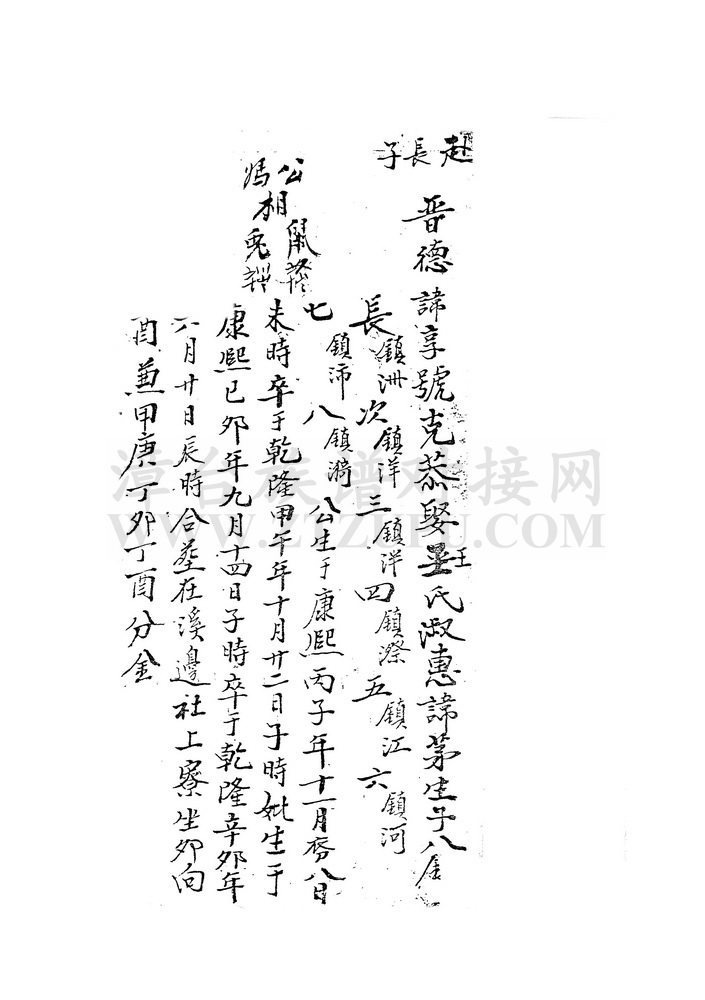 赴長子
晋德諱享號克恭娶王氏淑惠諱茅生子八
長鎮洲次鎮洋三鎮洋四鎮漈五鎮江六鎮河
七鎮沛八鎮漪公生于康熙丙子年十一月初八日
未時卒于乾隆甲午年十月廿二日子時妣生于
康熙已夘年九月十四日子時卒于乾隆辛夘年
六月廿日辰時合塟在溪邊社上寮坐夘向
酉兼甲庚丁夘丁酉分金
公相鼠
媽相兎
漳台族谱对接网
WWW.ZTZUPU.COM